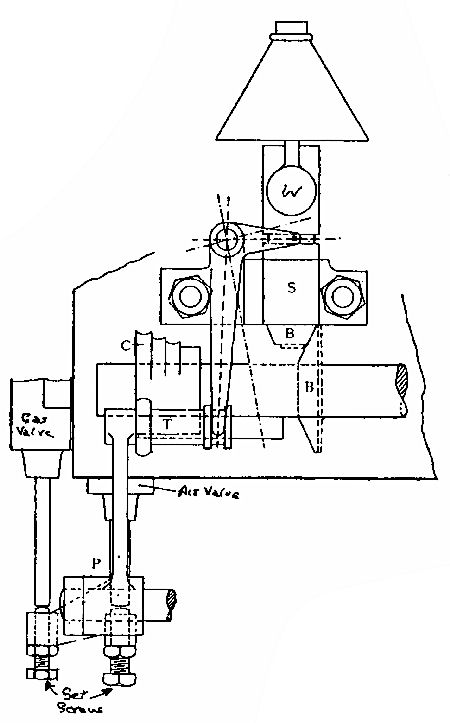 W
S
B
C
B
T
Gas
Valve
Air Valve
P
Set
Screws